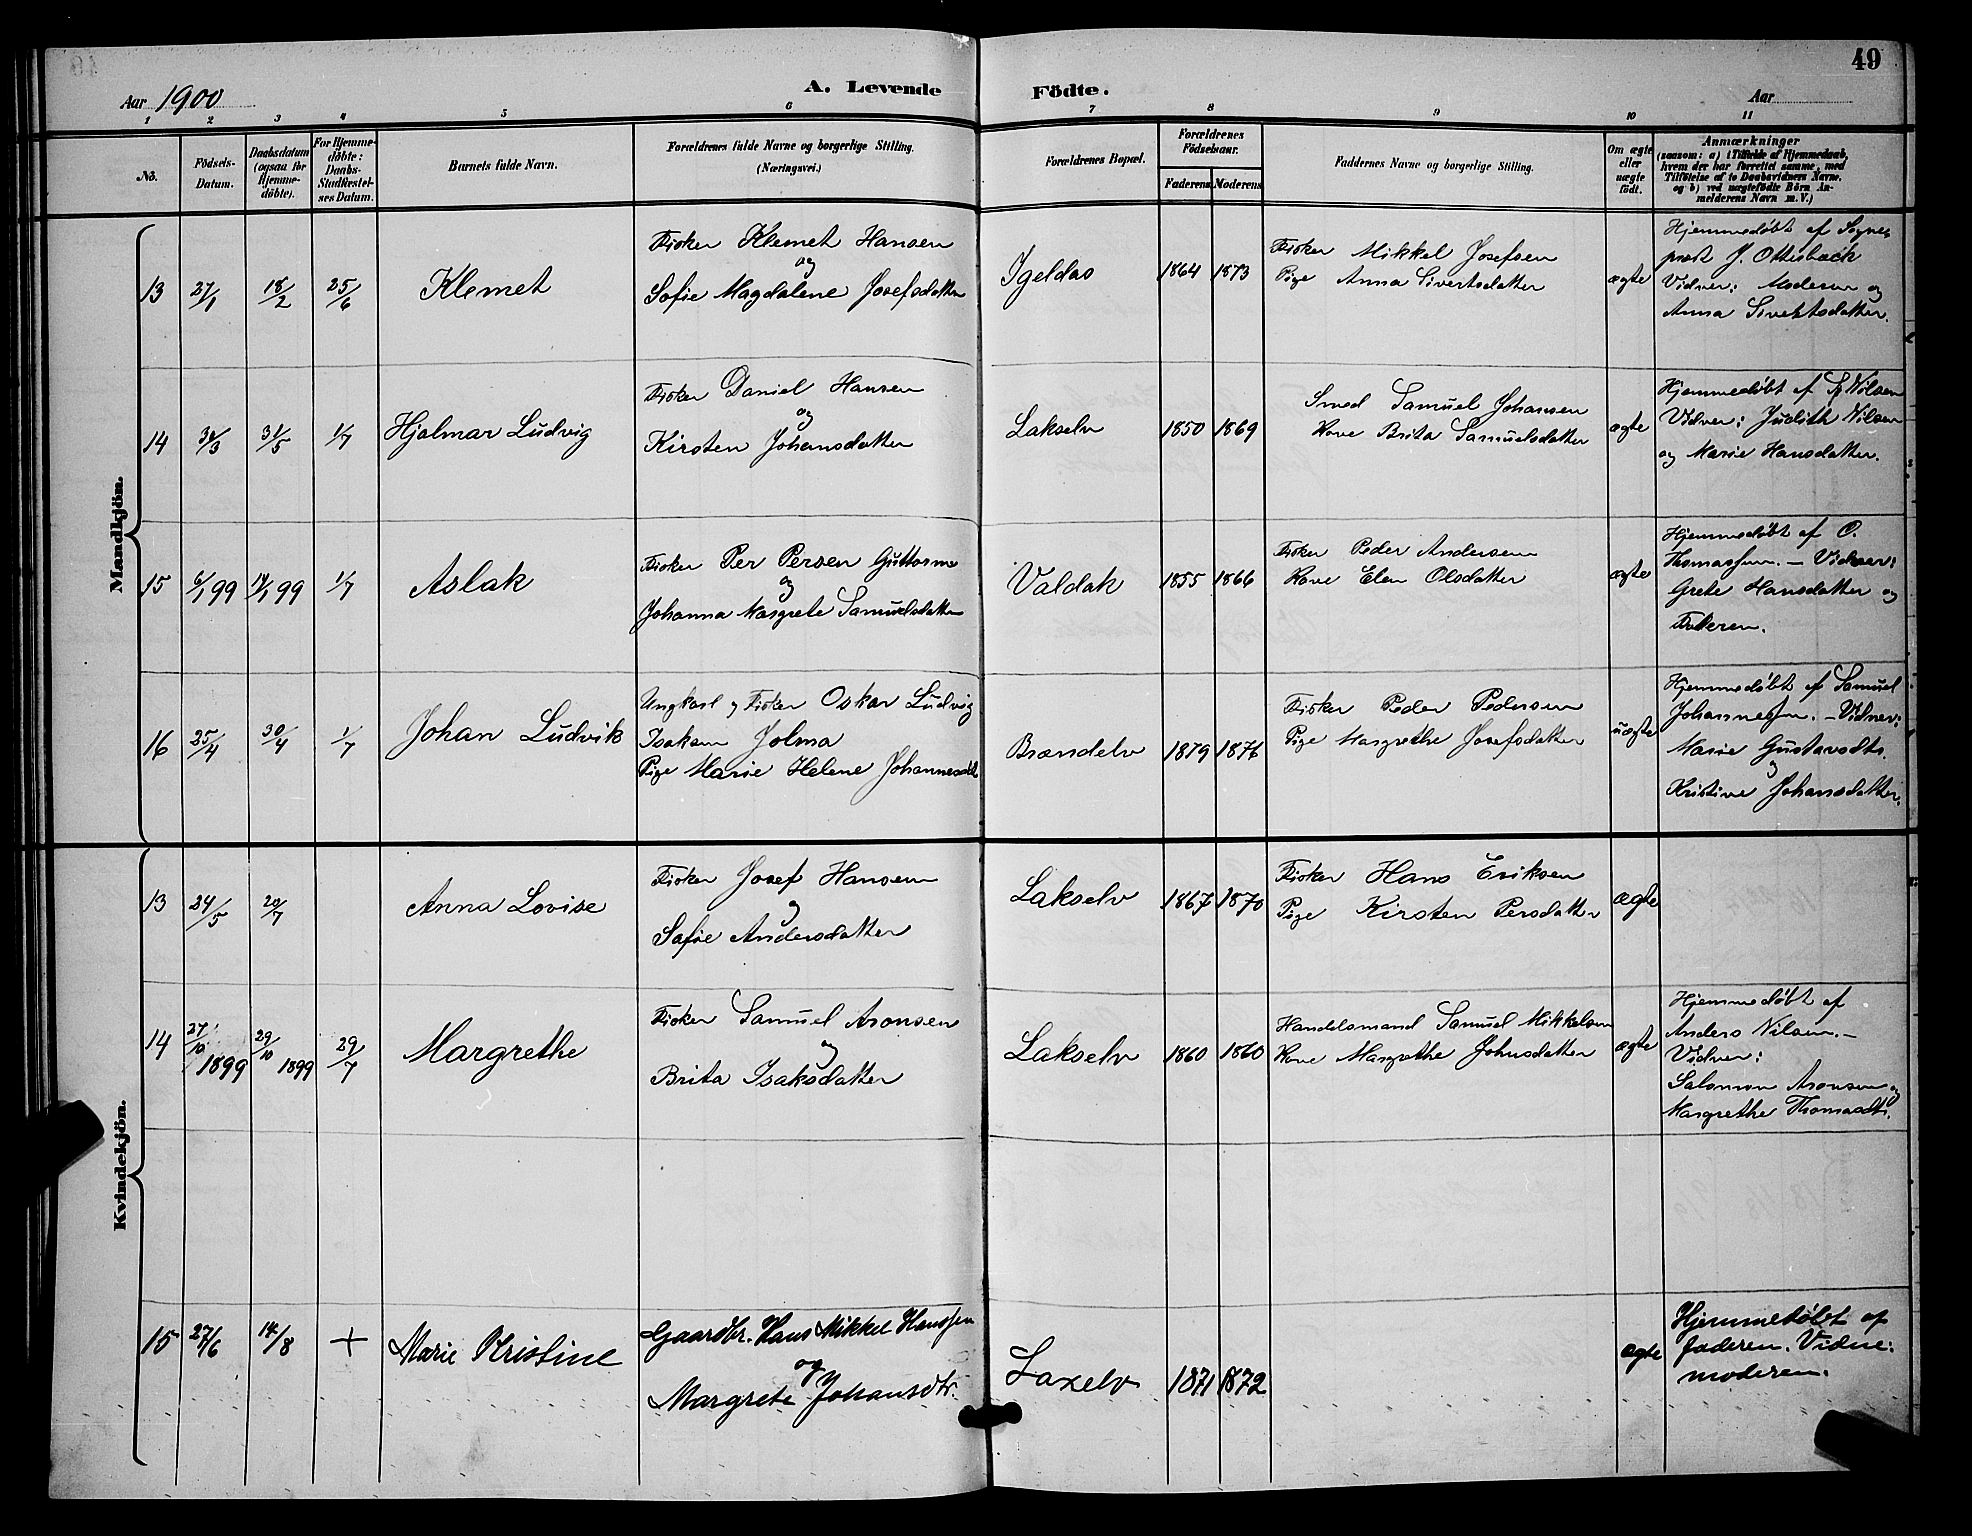 49
Aar 1900
A. Levende Födte.
Aar
1 2 3 4 5 6 7 8 9 10 11
No.
Födsels-Datum.
Daabsdatum (ogsaa for Hjemme-döbte).
For Hjemme-döbte: Daabs-Stadfæstel-ses Datum.
Barnets fulde Navn.
Forældrenes fulde Navne og borgerlige Stilling. (Næringsvei.)
Forældrenes Bopæl.
Forældrenes Födselsaar.
Faderens Moderens
Faddernes Navne og borgerlige Stilling.
Om ægte eller uægte födt.
Anmærkninger
(saasom: a) i Tilfælde af Hjemmedaab,
hvem der har forrettet samme, med
Tilföielse af to Daabsvidners Navne,
og b) ved uægtefödte Börn An-
melderens Navn m. V.)
Mandkjön.
13 27/1 18/2 25/6 Klemet
Fisker Klemet Hansen
og
Sofie Magdalene Josefsdatter
Igeldas 1864 1873
Fisker Mikkel Josefsen
Pige Anna Sivertsdatter
ægte
Hjemmedøbt af Sogne-
præst J. Otterbech
Vidner: Moderen og
Anna Sivertsdatter.
14 31/3 31/5 1/7 Hjalmar Ludvig
Fisker Daniel Hansen
og
Kirsten Johansdatter
Lakselv 1850 1869
Smed Samuel Johansen
Kone Brita Samuelsdatter
ægte
Hjemmedøbt af Nilsen
Vidner: Judith Nilsen
og Marie Hansdatter.
15 6/1 99 14/1 99 1/7 Aslak
Fisker Per Persen Guttorm
og
Johanna Margrete Samuelsdatter
Valdak 1855 1866
Fisker Peder Andersen
Kone Elen Olsdatter
ægte
Hjemmedøbt af O.
Thomassen. - Vidner:
Grete Hansdatter og
Faderen.
16 25/4 30/4 1/7 Johan Ludvik
Ungkarl og Fisker Oskar Ludvig
Isaksen Jolma
Pige Marie Helene Johannesdt.
Brændelv 1879 1876
Fisker Peder Pedersen
Pige Margrethe Josefsdatter
uægte
Hjemmedøbt af Samuel
Johannesen. - Vidner:
Marie Gustavsdtr.
og
Kristine Johansdatter.
Kvindekjön.
13 24/5 20/7 Anna Lovise
Fisker Josef Hansen
og
Sofie Andersdatter
Lakselv 1867 1870
Fisker Hans Eriksen
Pige Kirsten Persdatter
ægte
14 27/10 1899 29/10 1899 29/7 Margrethe
Fisker Samuel Aronsen
og
Brita Isaksdatter
Lakselv 1860 1860
Handelsmand Samuel Mikkelsen
Kone Margrethe Johnsdatter
ægte
Hjemmedøbt af
Anders Nilsen. -
Vidner:
Salomon Aronsen og
Margrethe Thomasdtr.
15 27/6 14/8 + Marie Kristine
Gaardbr. Hans Mikkel Hanssen
og
Margrete Johansdtr.
Laxelv 1871 1872
ægte
Hjemmedøbt af
faderen. Vidne:
moderen.